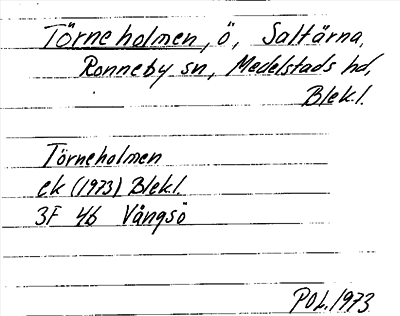 Törneholmen, ö, Saltärna,
Ronneby sn, Medelstads hd,
Blek.l.
Törneholmen
ek (1973) Blekl.
3F 4b Vångsö
POL.1973